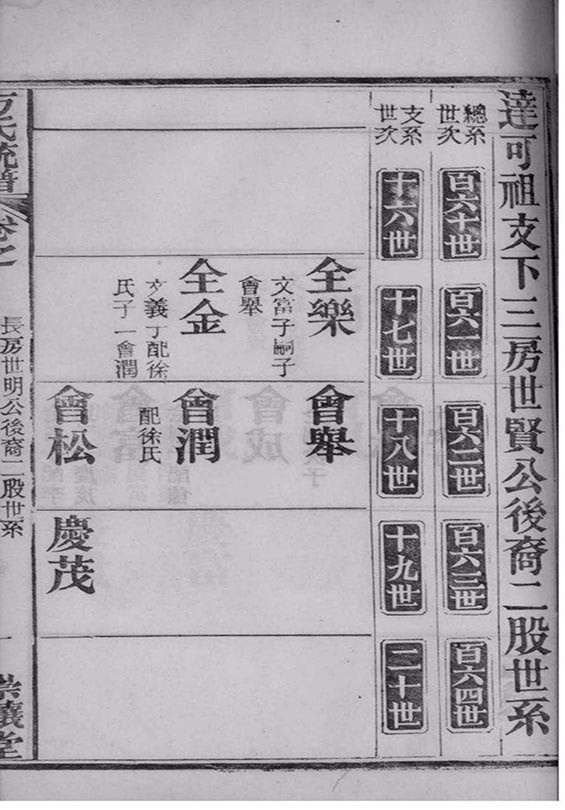 達可祖支下三房世賢公後裔二股世系
總系
世次
百六十世
百六一世
百六二世
百六三世
百六四世
支系
世次
十六世
十七世
十八世
十九世
二十世
全樂
文富子嗣子
會舉
全金
文義子配徐
氏子一會潤
會舉
會潤
配徐氏
會松
慶茂
方氏統譜
卷之
長房世明公後裔二股世系
一